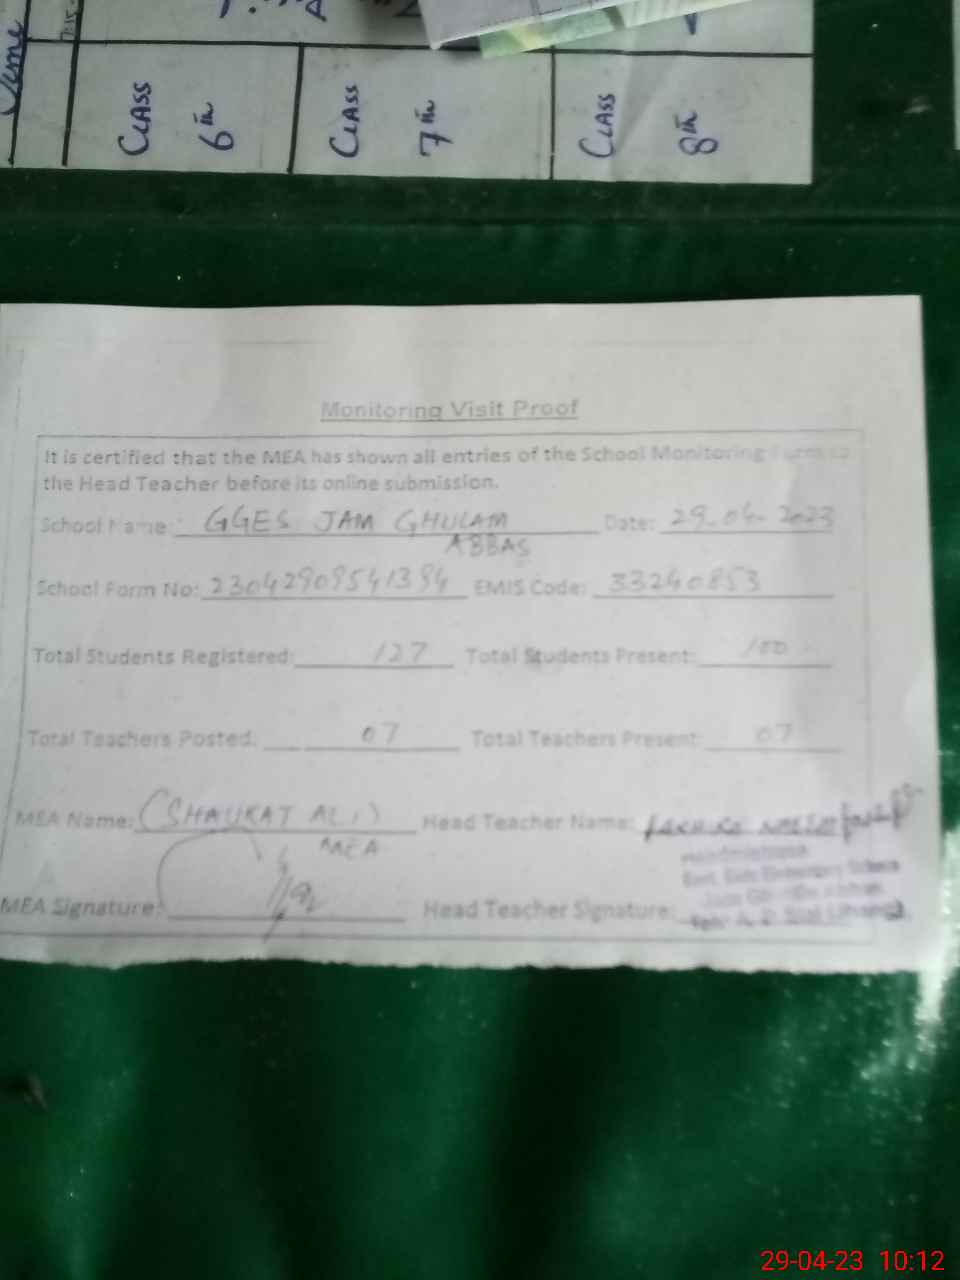 Time
CLASS
6th
CLASS
7th
CLASS
8th
Monitoring Visit Proof
It is certified that the MEA has shown all entries of the School Monitoring Form to
the Head Teacher before its online submission.
School Name: GGES JAM GHULAM Date: 29-04-2023
ABBAS
School Form No: EMIS Code: 33240853
Total Students Registered: 127 Total Students Present: 100
Total Teachers Posted: 07 Total Teachers Present: 07
MEA Name: (SHAUKAT ALI) Head Teacher Name:
MEA
Headmistress
Govt. Girls Elementary School
MEA Signature: Head Teacher Signature:
29-04-23 10:12